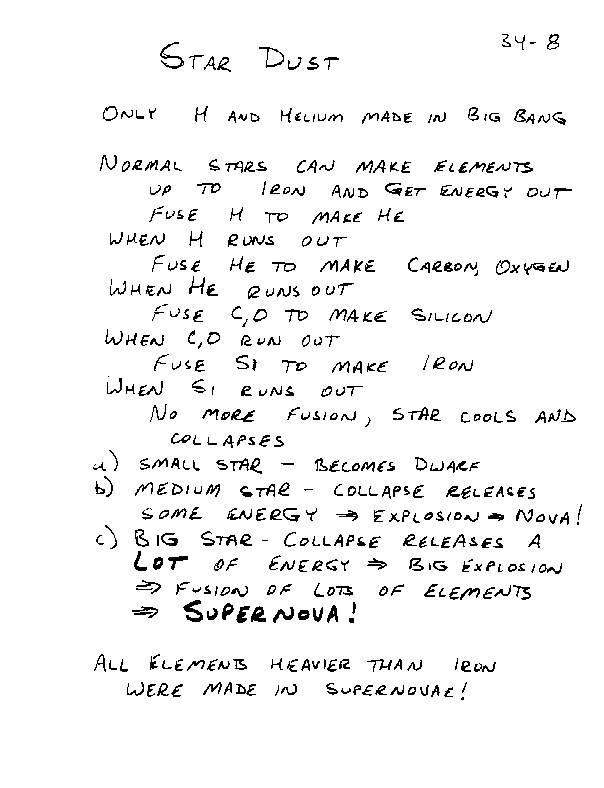 34-8
STAR DUST
ONLY H AND HELIUM MADE IN BIG BANG
NORMAL STARS CAN MAKE ELEMENTS
UP TO IRON AND GET ENERGY OUT
FUSE H TO MAKE HE
WHEN H RUNS OUT
FUSE HE TO MAKE CARBON, OXYGEN
WHEN HE RUNS OUT
FUSE C,O TO MAKE SILICON
WHEN C,O RUN OUT
FUSE SI TO MAKE IRON
WHEN SI RUNS OUT
NO MORE FUSION, STAR COOLS AND
COLLAPSES
a) SMALL STAR – BECOMES DWARF
b) MEDIUM STAR – COLLAPSE RELEASES
SOME ENERGY ⇒ EXPLOSION ⇒ NOVA!
c) BIG STAR – COLLAPSE RELEASES A
LOT OF ENERGY ⇒ BIG EXPLOSION
⇒ FUSION OF LOTS OF ELEMENTS
⇒ SUPERNOVA!
ALL ELEMENTS HEAVIER THAN IRON
WERE MADE IN SUPERNOVAE!